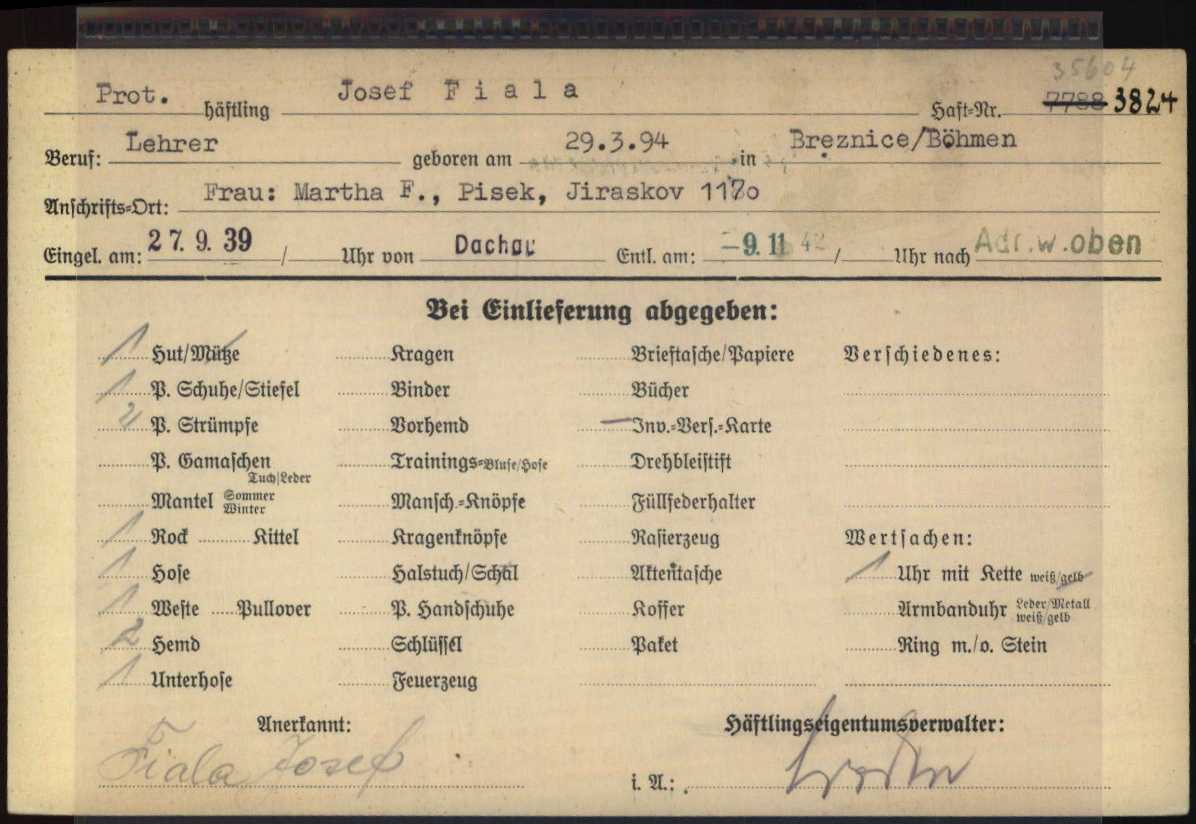 35604
Prot. häftling Josef Fiala Haft-Nr. 7788 3824
Beruf: Lehrer geboren am 29.3.94 in Breznice/Böhmen
Anschrifts-Ort: Frau: Martha F., Pisek, Jiraskov 1170
Eingel. am: 27. 9. 39 / Uhr von Dachau Entl. am: -9. 11 42 / Uhr nach Adr. w. oben
Bei Einlieferung abgegeben:
1 Hut/Mütze Kragen Brieftasche/Papiere Verschiedenes:
1 P. Schuhe/Stiefel Binder Bücher
2 P. Strümpfe Vorhemd — Inv.-Vers.-Karte
P. Gamaschen Tuch/Leder Trainings-Bluse/Hose Drehbleistift
Mantel Sommer Winter Mansch.-Knöpfe Füllfederhalter
1 Rock Kittel Kragenknöpfe Rasierzeug Wertsachen:
1 Hose Halstuch/Schal Aktentasche 1 Uhr mit Kette weiß/gelb
1 Weste Pullover P. Handschuhe Koffer Armbanduhr Leder/Metall weiß/gelb
2 Hemd Schlüssel Paket Ring m./o. Stein
1 Unterhose Feuerzeug
Anerkannt: Häftlingseigentumsverwalter:
Fiala Josef i. A.: